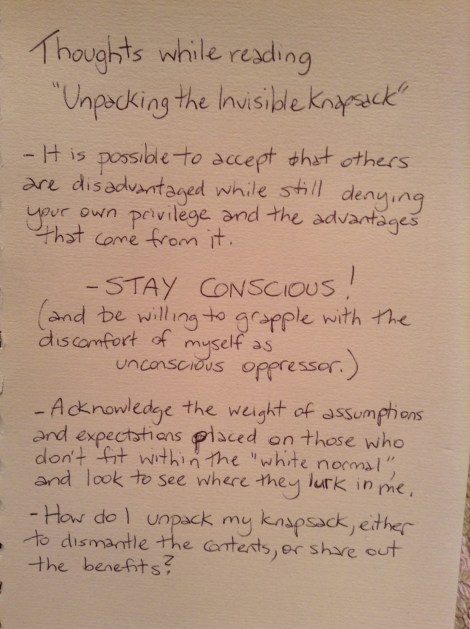 Thoughts while reading
"Unpacking the Invisible Knapsack"
- It is possible to accept that others
are disadvantaged while still denying
your own privilege and the advantages
that come from it.
- STAY CONSCIOUS!
(and be willing to grapple with the
discomfort of myself as
unconscious oppressor.)
- Acknowledge the weight of assumptions
and expectations placed on those who
don't fit within the "white normal",
and look to see where they lurk in me.
- How do I unpack my knapsack, either
to dismantle the contents, or share out
the benefits?